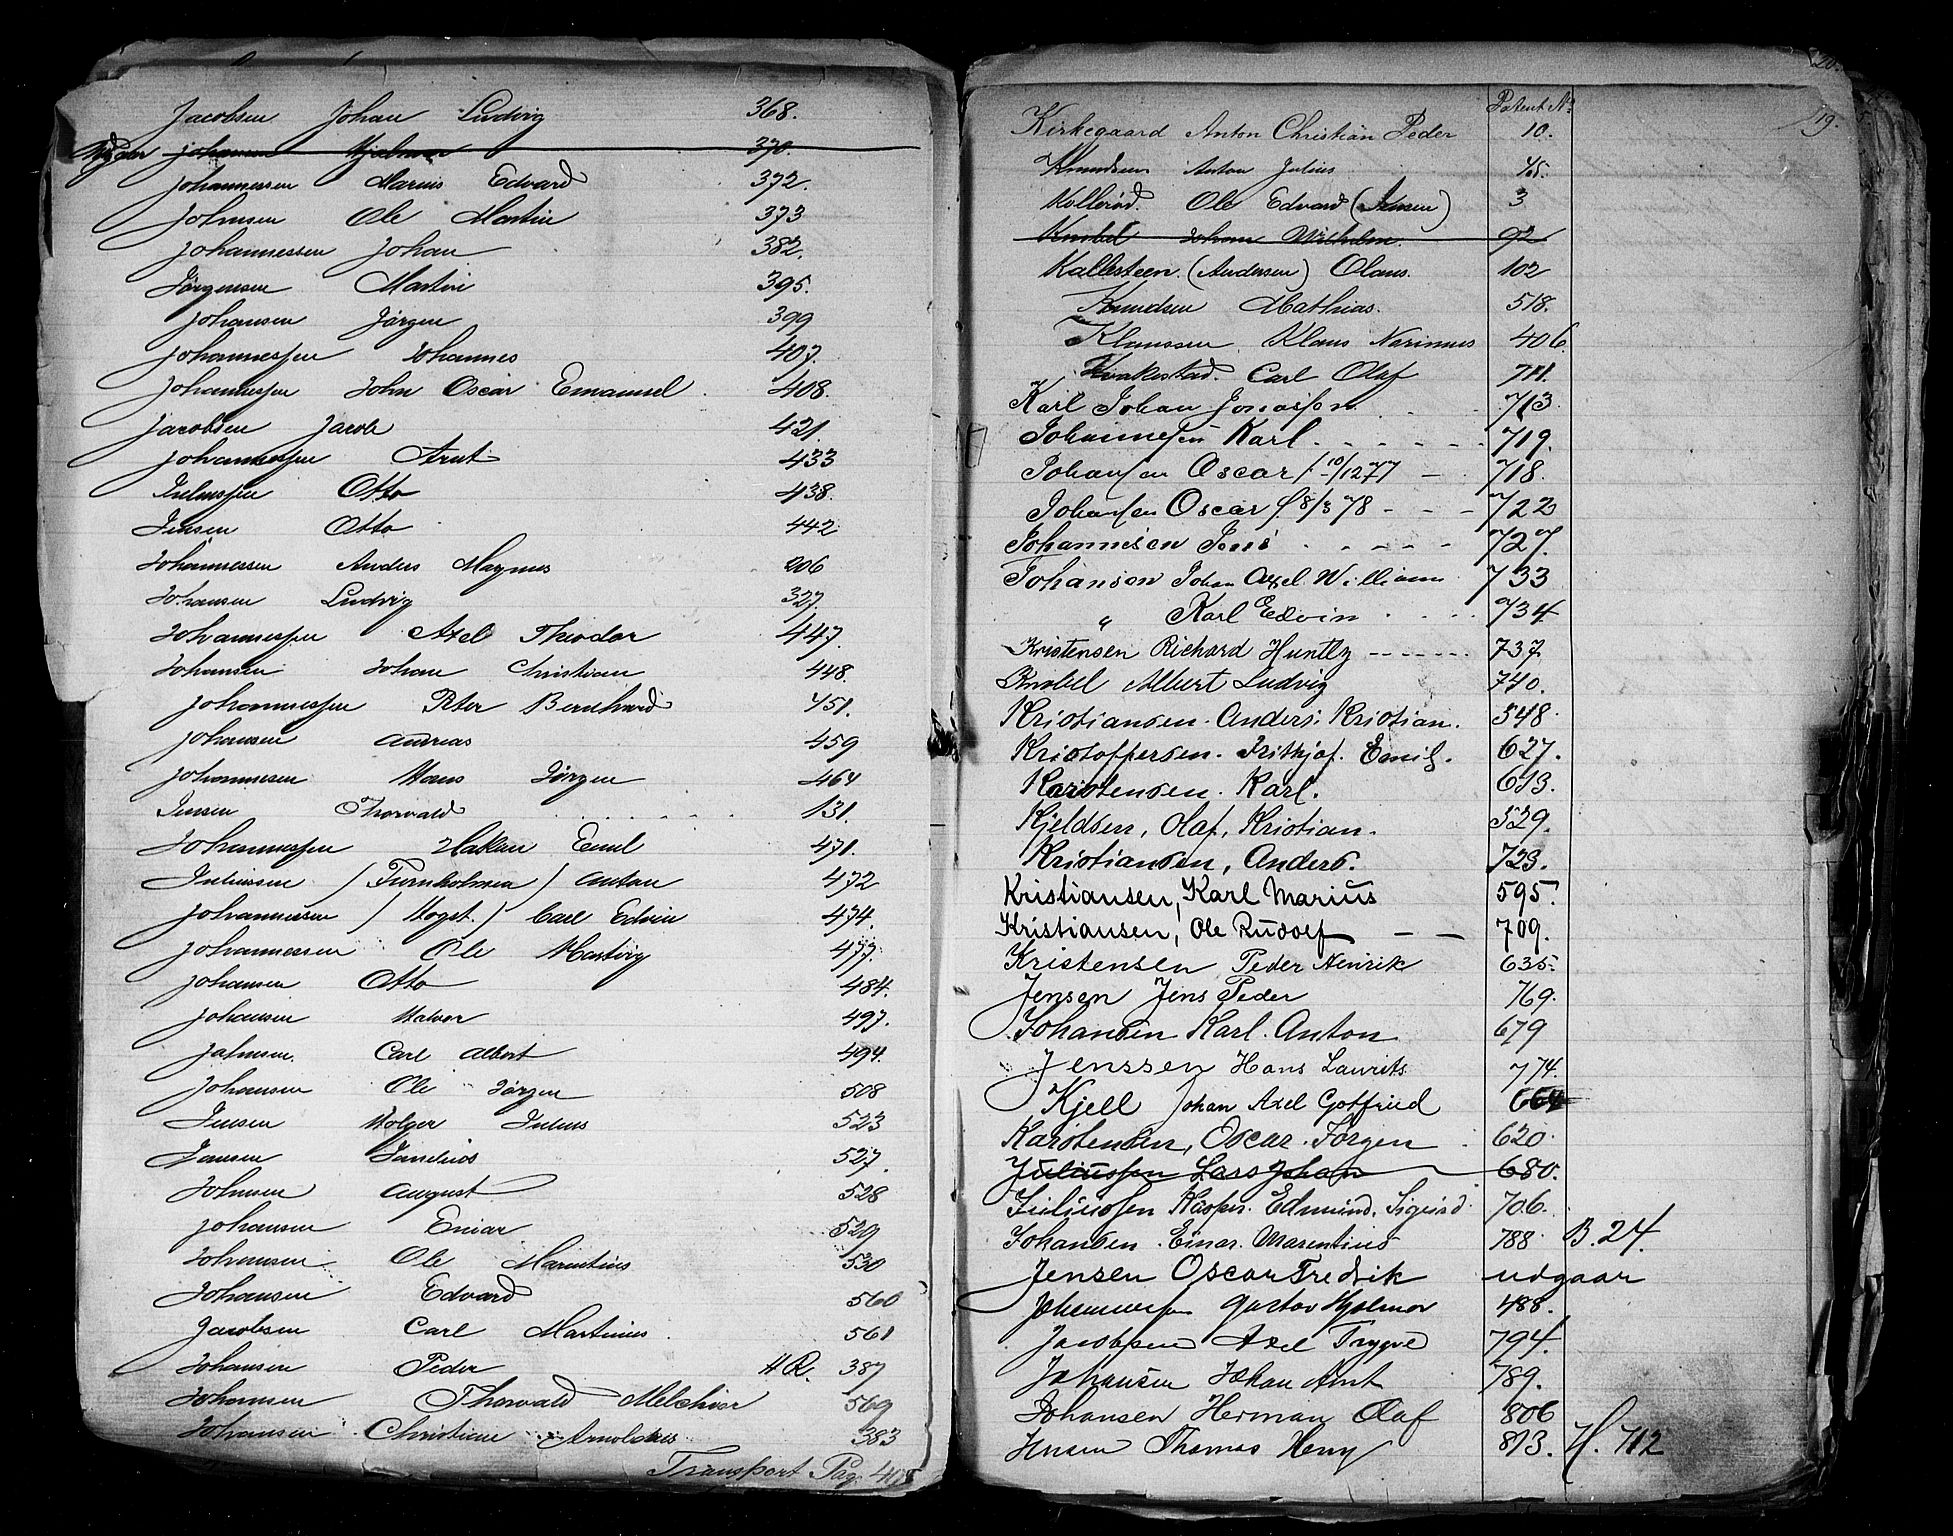 Jacobsen Johan Ludvig 368.
Udgaar Johansen Hjalmar 370.
Johannessen Marius Edvard 372.
Johnsen Ole Martin 373
Johannessen Johan 382.
Jørgensen Martin 395.
Johansen Jørgen 399
Johannessen Johannes 407.
Johannessen John Oscar Emanuel 408.
Jacobsen Jacob 421.
Johannessen Arnt 433
Juliussen Otto 438.
Jensen Otto 442
Johannessen Anders Magnus 206
Johansen Ludvig 327.
Johannessen Axel Theodor 447.
Johansen Johan Christian 448.
Johannessen Peter Bernhard 451.
Johansen Andreas 459
Johannesen Hans Jørgen 464
Jensen Thorvald 131.
Johannessen Hakon Emil 471.
Juliussen / Furnholmen / Anton 472
Johannessen / Hogst. / Carl Edvin 474.
Johannessen Ole Hartvig 477.
Johansen Otto 484.
Johansen Halvor 497.
Johnsen. Carl Albert 494.
Johansen Ole Jørgen 508
Jensen Holger Julius 523
Jansen 527.
Johnsen August 528
Johansen Einar 529
Johansen Ole Marentius 530
Johansen Edvard 560
Jacobsen Carl Martinius. 561
Johansen Peder H.R. 387
Johansen Thorvald Melchior 569
Johansen Christian Arnoldus 383
Transport Pag. 405
20.
19.
Patent No.
Kirkegaard Anton Christian Peder 10.
Knudsen Anton Julius 45.
Kollerød. Ole Edvard (Jensen) 3
Knobel Johan Wilhelm. 92
Kallesteen. (Andersen) Olaus. 102
Knudsen Mathias. 518.
Klaussen. Klaus Narinius 406.
Krakestad. Carl Olaf 711.
Karl Johan Jonassen 713.
Johannessen Karl. 719.
Johansen Oscar f. 10/12 77 718.
Johansen Oscar f 8/3 78 722
Johannesen Jens 727.
Johanson Johan Axel William 733
" Karl Edvin 734.
Kristensen Richard Huntly 737.
Knobel Albert Ludvig 740.
Kristiansen. Anders. Kristian. 548.
Kristoffersen. Frithjof. Emil. 627.
Karstensen. Karl. 613.
Kjeldsen, Olaf, Kristian. 529.
Kristiansen, Anders. 723.
Kristiansen, Karl Marius 595.
Kristiansen, Ole Rudolf 709.
Kristensen Peder Henrik 635.
Jensen Jens Peder 769.
Johansen Karl. Anton 679
Jenssen Hans Laurits 774.
Kjell Johan Axel Gotfried 664
Karstensen, Oscar. Jørgen 620.
Juliussen Lars Johan 680.
Juliussen Kasper. Edmund. Sigurd. 706.
Johansen. Einar. Marentius 788. B. 24.
Jensen Oscar Fredrik udgaar
Johannessen Gustav Hjalmar 488.
Jacobsen Axel Trygve 794.
Johansen Johan Arnt 789.
Johansen Herman Olaf 806
Jensen Thomas Henry 813. H. 712